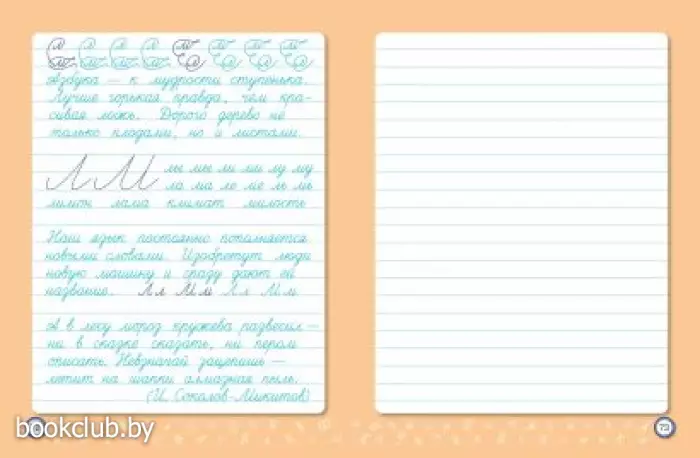 Азбука — к мудрости ступенька.
Лучше горькая правда, чем кра-
сивая ложь. Дорого дерево не
только плодами, но и листами.
Л М лы мы ли ми лу му
ла ма ле ме ль мь
лимон лама климат милость
Наш язык постоянно пополняется
новыми словами. Изобретут люди
новую машину и сразу дают ей
название. Л л М м Л л М м
А в лесу мороз кружева развесил —
ни в сказке сказать, ни пером
описать. Невзначай зацепишь —
летит на шапки алмазная пыль.
(И. Соколов-Микитов)
bookclub.by
73